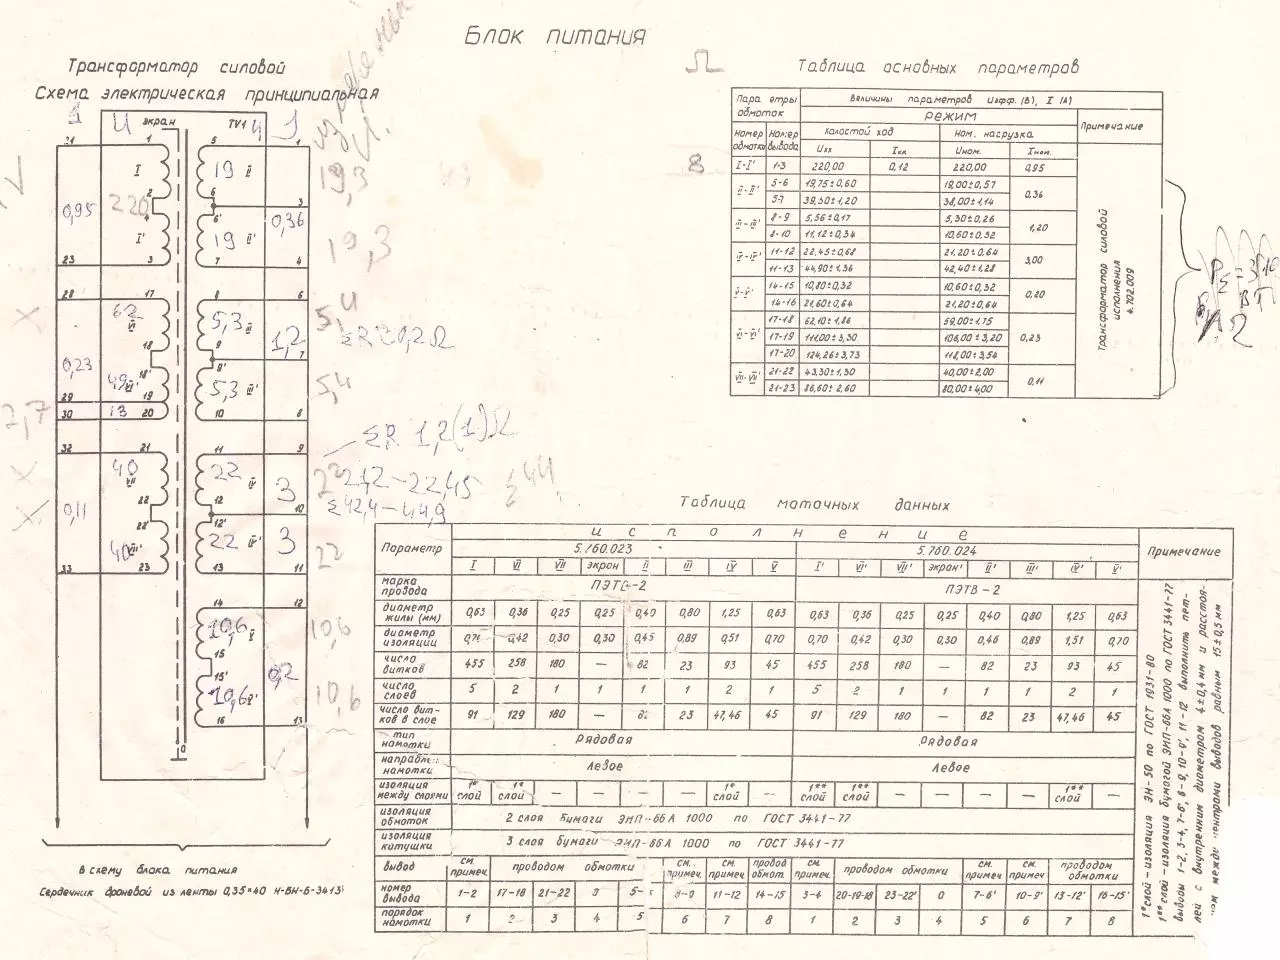 Блок питания
Трансформатор силовой
Схема электрическая принципиальная
экран TV1
I
I'
II
II'
VI
VI'
III
III'
IV
IV'
VII
VII'
V
V'
21 1 5 1
2 6 3
4 6'
23 3 7 4
28 17 8 6
18 9 7
18' 9'
29 19
30 20 10 8
32 21 11 9
22 12 10
22' 12'
33 23 13 11
14 12
15
15'
16 13
0
0,95 220 19 0,36
19
62 5,3 1,2
0,23 49 5,3
13
40 22 3
0,11 40 22 3
10,6 0,2
10,6
19,3
19,3
5,4
5,4
ΣR 1,2(1)Ω
21,2-22,45 Σ44
Σ42,4-44,9
22
10,6
10,6
В схему блока питания
Сердечник броневой из ленты 0,35×40
Ω
8
Таблица основных параметров
Параметры обмоток Величины параметров Uэфф. (В), I (А)
Режим Примечание
Номер обмотки Номер вывода Холостой ход Ном. нагрузка
Uхх Iхх Uном. Iном.
I-I' 1-3 220,00 0,12 220,00 0,95
II-II' 5-6 19,75±0,60 19,00±0,57 0,36
5-7 39,50±1,20 38,00±1,14
III-III' 8-9 5,56±0,17 5,30±0,26 1,20
8-10 11,12±0,34 10,60±0,52
IV-IV' 11-12 22,45±0,68 21,20±0,64 3,00
11-13 44,90±1,36 42,40±1,28
V-V' 14-15 10,80±0,32 10,60±0,32 0,20
14-16 21,60±0,64 21,20±0,64
VI-VI' 17-18 62,10±1,86 59,00±1,75 0,23
17-19 111,00±3,30 106,00±3,20
17-20 124,26±3,73 118,00±3,54
VII-VII' 21-22 43,30±1,30 40,00±2,00 0,11
21-23 86,60±2,60 80,00±4,00
Трансформатор силовой
исполнения
4.702.009
Таблица моточных данных
Параметр исполнение Примечание
5.760.023 5.760.024
I VI VII экран II III IV V I' VI' VII' экран' II' III' IV' V'
марка провода ПЭТВ-2 ПЭТВ-2
диаметр жилы (мм) 0,63 0,36 0,25 0,25 0,40 0,80 1,25 0,63 0,63 0,36 0,25 0,25 0,40 0,80 1,25 0,63
диаметр изоляции 0,71 0,42 0,30 0,30 0,45 0,89 0,51 0,70 0,70 0,42 0,30 0,30 0,46 0,89 1,51 0,70
число витков 455 258 180 — 82 23 93 45 455 258 180 — 82 23 93 45
число слоев 5 2 1 1 1 1 2 1 5 2 1 1 1 1 2 1
число витков в слое 91 129 180 — 82 23 47,46 45 91 129 180 — 82 23 47,46 45
тип намотки Рядовая Рядовая
направл. намотки Левое Левое
изоляция между слоями 1* слой 1* слой — — — — 1* слой — 1** слой 1** слой — — — — 1** слой —
изоляция обмоток 2 слоя бумаги ЭМП-66А 1000 по ГОСТ 3441-77
изоляция катушки 3 слоя бумаги ЭМП-66А 1000 по ГОСТ 3441-77
вывод см. примеч. проводом обмотки см. примеч. см. примеч. провод обмот. см. примеч. проводом обмотки см. примеч см. примеч проводом обмотки
номер вывода 1-2 17-18 21-22 0 5- 8-9 11-12 14-15 3-4 20-19-18 23-22' 0 7-6' 10-9' 13-12' 16-15'
порядок намотки 1 2 3 4 5 6 7 8 1 2 3 4 5 6 7 8
1* слой - изоляция ЭН-50 по ГОСТ 1931-80
1** слой - изоляция бумагой ЭМП-66А 1000 по ГОСТ 3441-77
выводы 1-2, 3-4, 7-6', 8-9, 10-9', 11-12 выполнить пет-
лей с внутренним диаметром 4±0,4 мм и расстоя-
нием между центрами выводов равным 15±0,5 мм